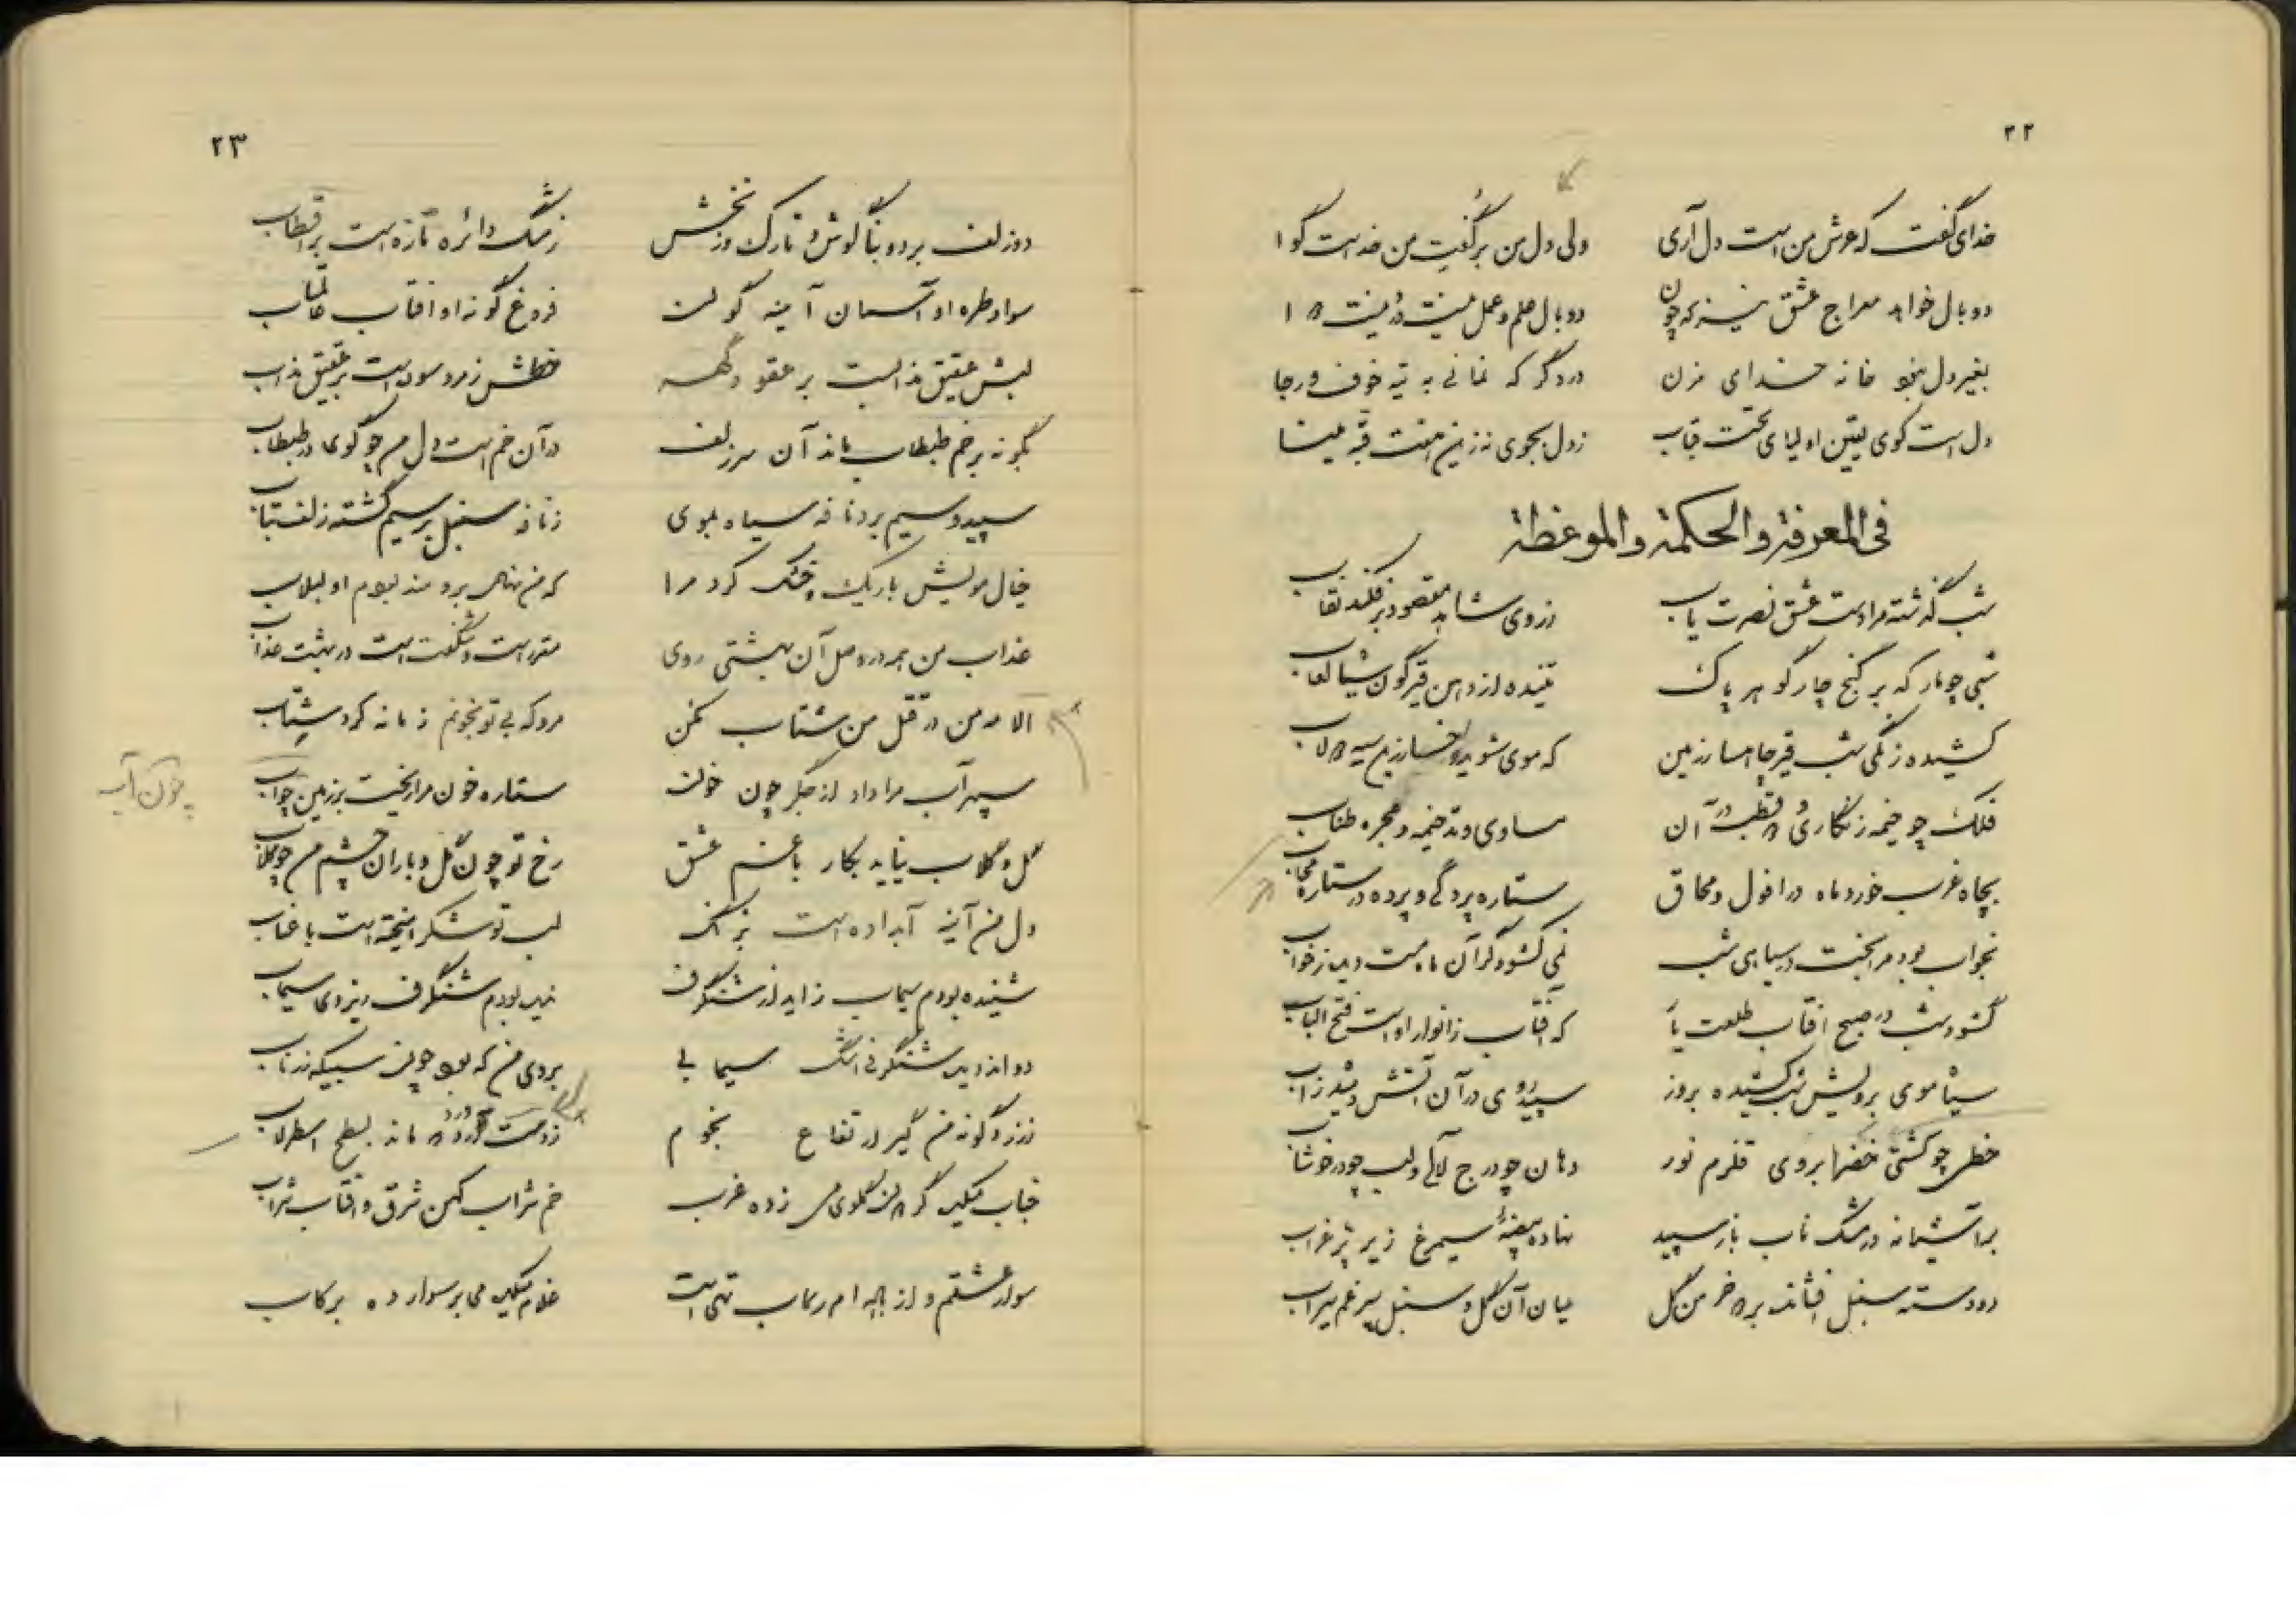 ۲۲
خدای گفت که عرش من است دل آری ولی دل من برگفت من خداست گوا
دو بال خواهد معراج عشق نیز که چون دو بال علم و عمل نیست
بغیر دل بخو خانه خدای مزن در دگر که نمانی به تیه خوف و رجا
دل است کوی یقین اولیای تحت قباب ز دل بجوی نه زین هفت قبه مینا
فی المعرفة والحکمة والموعظة
شب گذشته مرا دست عشق نصرت یاب ز روی شاهد مقصود برفکند نقاب
شبی چو مار که بر گنج چار گوهر پاک تنیده از دهن قیرگون شبا لعاب
کشیده زنگی شب قیر جامها ز زمین که موی شوید و رخسار زین سیه دولاب
فلک چو خیمه زنگاری و دو قطب در آن مساوی وتد خیمه و مجره طناب
بچاه غرب خور و ماه در افول و محاق ستاره پردگی و پرده در ستاره حجاب
بخواب بود مرا بخت در سیاهی شب نمی گشود گر آن ماه مست دیده ز خواب
گشود شب در صبح آفتاب طلعت یار که آفتاب ز انوار اوست فتح الباب
سیاه موی برویش شب کشیده بروز سپید روی در آن آتش
خطی چو کشتی خضرا بروی قلزم نور دهان چو درج لآلی و لب چو در خوشاب
بر آشیانه در مشک ناب باز سپید نهاده بیضه سیمرغ زیر پر غراب
دو دسته سنبل افشانده بر دو خرمن گل میان آن گل و سنبل سپرغم سیراب
۲۳
دو زلف بر دو بناگوش و تارک و زنخش ز مشک دائره تازه است بر اقطاب
سواد طره او آسمان آینه گون است فروغ گونه او آفتاب عالمتاب
لبش عقیق مذابست بر عقود گهر خطش زمرد سوده است بر عقیق مذاب
بگونه بر خم طبطاب ماند آن سر زلف در آن خم است دل من چو گوی در طبطاب
سپید و سیم بر و نافه سیاه بموی ز نافه سنبل بر سیم گشته زلف بتاب
خیال مویش باریک و خشک کرد مرا که من نهال برومند بودم او لبلاب
عذاب من همه در وصل آن بهشتی روی مقرر است و شگفت است در بهشت عذاب
الا مه من در قتل من شتاب مکن مرو که بی تو بخونم زمانه کرد شتاب
سپهر آب مرا داد از جگر چون خون ستاره خون مرا ریخت بر زمین چو آب
چون آب
گل و گلاب نیاید بکار با غم عشق رخ تو چون گل و باران چشم من چو گلاب
دل من آینه آب داده است بزنگ لب تو شکر آمیخته است با عناب
شنیده بودم سیماب زاید از شنگرف ندیده بودم شنگرف ریزد از سیماب
دواند دیده شنگرفی اشگ سیمابی بروی من که بود چون سبیکه زر ناب
ز زرد گونه من گیر ارتفاع نجوم ماند بسطح اسطرلاب
جناب میکده گردان گلوی من زده غرب خم شراب کهن شرق و آفتاب شراب
سوار عشقم و از باده ام رکاب تهی است غلام میکده می بر سوار ده برکاب